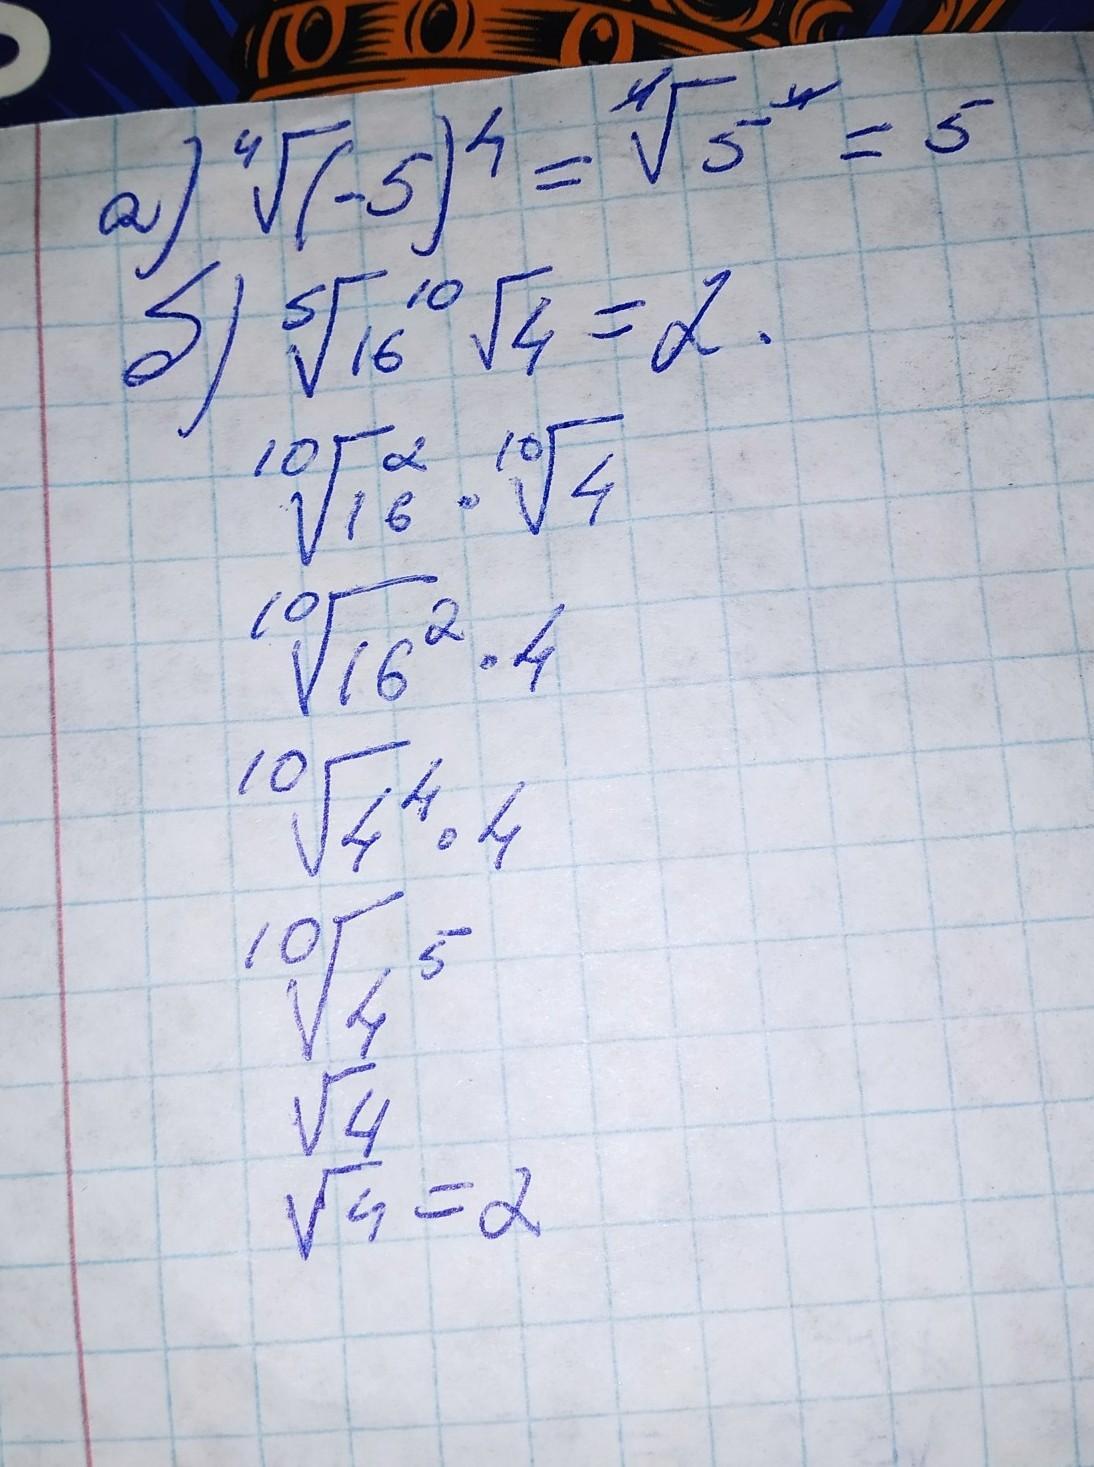 а) ⁴√(-5)⁴ = ⁴√5⁴ = 5
б) ⁵√16 ¹⁰√4 = 2.
¹⁰√16² · ¹⁰√4
¹⁰√16² · 4
¹⁰√4⁴ · 4
¹⁰√4⁵
√4
√4 = 2